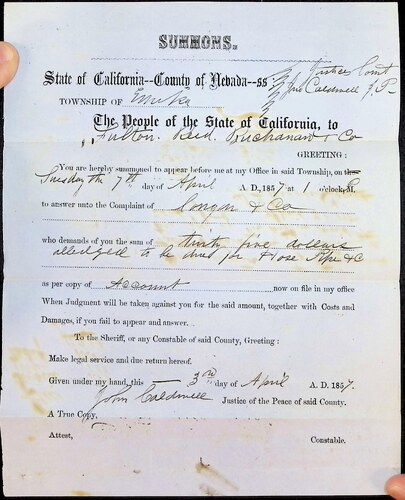 SUMMONS.
Justice Court
State of California--County of Nevada--ss
Jno Caldwell J.P.
TOWNSHIP OF Eureka
The People of the State of California, to
Fulton. Reed. Buchanaw & Co
GREETING:
You are hereby summoned to appear before me at my Office in said Township, on the
Tuesday the 7th day of April A. D, 1857 at 1 o'clock, M.
to answer unto the Complaint of Conger & Co
who demands of you the sum of thirty five dollars
alledged to be due for Hose Pipe &c
as per copy of Account now on file in my office
When Judgment will be taken against you for the said amount, together with Costs and
Damages, if you fail to appear and answer.
To the Sheriff, or any Constable of said County, Greeting:
Make legal service and due return hereof.
Given under my hand, this 3rd day of April A. D. 1857.
John Caldwell Justice of the Peace of said County.
A True Copy,
Attest, Constable.